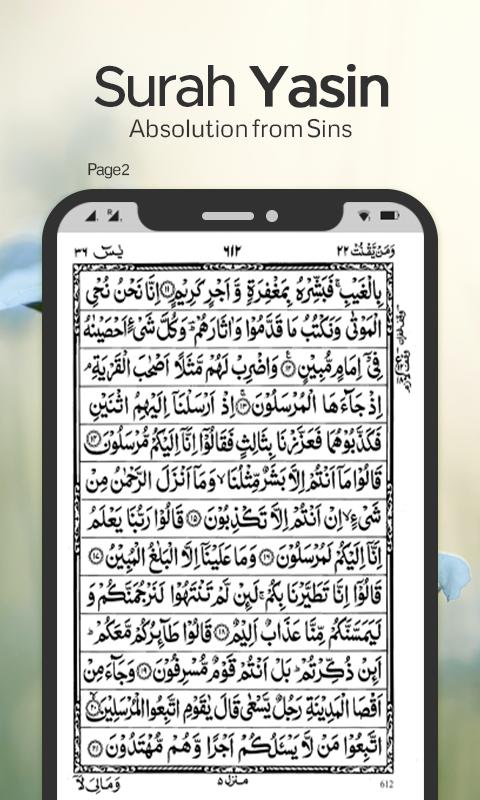 Surah Yasin
Absolution from Sins
Page2
وَمَنْ يَّقْنُتْ ٢٢ ٦١٢ يٰسٓ ٣٦
بِالْغَيْبِ ۚ فَبَشِّرْهُ بِمَغْفِرَةٍ وَّ اَجْرٍ كَرِيْمٍ ﴿١١﴾ اِنَّا نَحْنُ نُحْيِ
الْمَوْتٰى وَنَكْتُبُ مَا قَدَّمُوْا وَاٰثَارَهُمْ ۛ وَكُلَّ شَيْءٍ اَحْصَيْنٰهُ
فِيْٓ اِمَامٍ مُّبِيْنٍ ﴿١٢﴾ وَاضْرِبْ لَهُمْ مَّثَلًا اَصْحٰبَ الْقَرْيَةِ ۘ
اِذْ جَآءَهَا الْمُرْسَلُوْنَ ﴿١٣﴾ اِذْ اَرْسَلْنَآ اِلَيْهِمُ اثْنَيْنِ
فَكَذَّبُوْهُمَا فَعَزَّزْنَا بِثَالِثٍ فَقَالُوْٓا اِنَّآ اِلَيْكُمْ مُّرْسَلُوْنَ ﴿١٤﴾
قَالُوْا مَآ اَنْتُمْ اِلَّا بَشَرٌ مِّثْلُنَا ۙ وَمَآ اَنْزَلَ الرَّحْمٰنُ مِنْ
شَيْءٍ ۙ اِنْ اَنْتُمْ اِلَّا تَكْذِبُوْنَ ﴿١٥﴾ قَالُوْا رَبُّنَا يَعْلَمُ
اِنَّآ اِلَيْكُمْ لَمُرْسَلُوْنَ ﴿١٦﴾ وَمَا عَلَيْنَآ اِلَّا الْبَلٰغُ الْمُبِيْنُ ﴿١٧﴾
قَالُوْٓا اِنَّا تَطَيَّرْنَا بِكُمْ ۚ لَئِنْ لَّمْ تَنْتَهُوْا لَنَرْجُمَنَّكُمْ وَ
لَيَمَسَّنَّكُمْ مِّنَّا عَذَابٌ اَلِيْمٌ ﴿١٨﴾ قَالُوْا طَآئِرُكُمْ مَّعَكُمْ ؕ
اَئِنْ ذُكِّرْتُمْ ؕ بَلْ اَنْتُمْ قَوْمٌ مُّسْرِفُوْنَ ﴿١٩﴾ وَجَآءَ مِنْ
اَقْصَا الْمَدِيْنَةِ رَجُلٌ يَّسْعٰى قَالَ يٰقَوْمِ اتَّبِعُوا الْمُرْسَلِيْنَ ﴿٢٠﴾
اتَّبِعُوْا مَنْ لَّا يَسْئَلُكُمْ اَجْرًا وَّهُمْ مُّهْتَدُوْنَ ﴿٢١﴾
وَمَالِيَ لَآ منزل ٥ 612